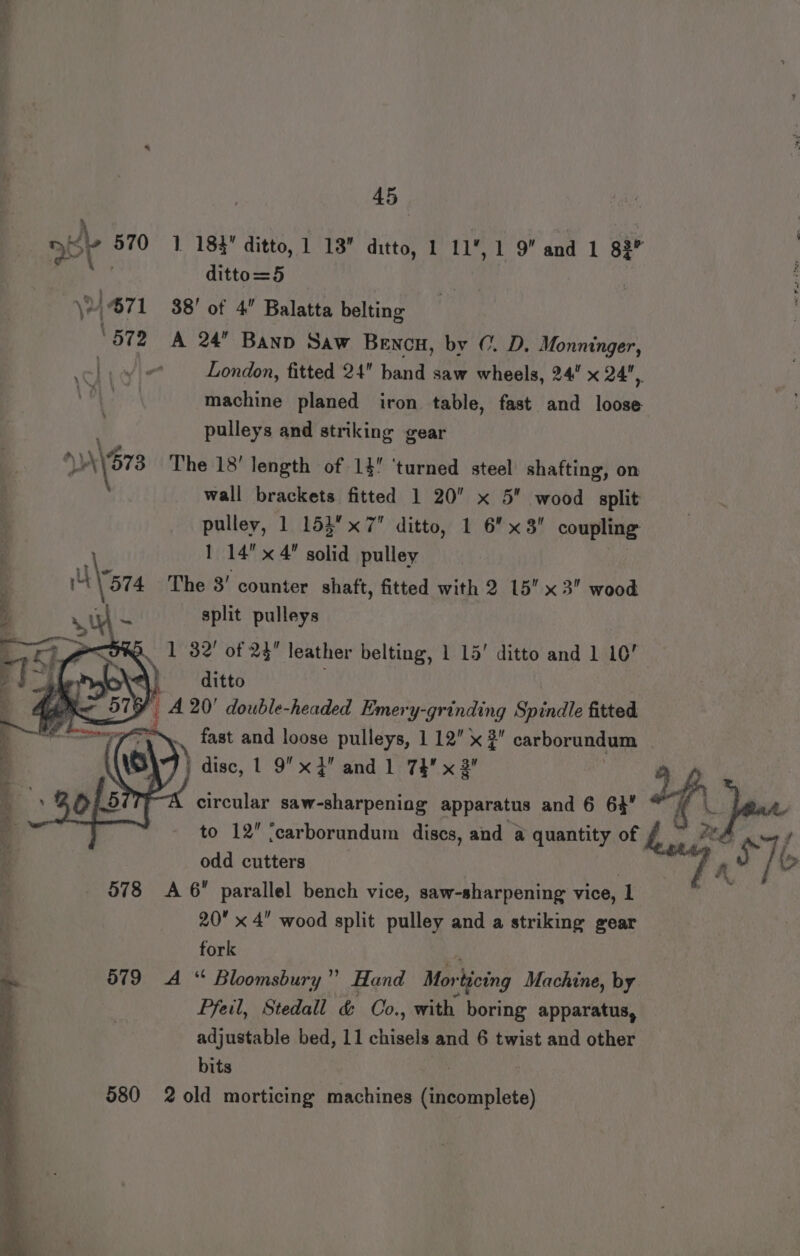 45
570 1 18½" ditto, 1 13" ditto, 1 11", 1 9" and 1 8¾"
ditto=5
571 38' of 4" Balatta belting
572 A 24" Band Saw Bench, by C. D. Monninger,
London, fitted 24" band saw wheels, 24" x 24",
machine planed iron table, fast and loose
pulleys and striking gear
573 The 18' length of 1½" turned steel shafting, on
wall brackets fitted 1 20" x 5" wood split
pulley, 1 15½" x 7" ditto, 1 6" x 3" coupling
1 14" x 4" solid pulley
574 The 3' counter shaft, fitted with 2 15" x 3" wood
split pulleys
1 32' of 2½" leather belting, 1 15' ditto and 1 10'
ditto
A 20' double-headed Emery-grinding Spindle fitted
fast and loose pulleys, 1 12" x ¾" carborundum
disc, 1 9" x ½" and 1 7½" x ¾"
577 A circular saw-sharpening apparatus and 6 6½"
to 12" carborundum discs, and a quantity of
odd cutters
578 A 6" parallel bench vice, saw-sharpening vice, 1
20" x 4" wood split pulley and a striking gear
fork
579 A “ Bloomsbury ” Hand Morticing Machine, by
Pfeil, Stedall & Co., with boring apparatus,
adjustable bed, 11 chisels and 6 twist and other
bits
580 2 old morticing machines (incomplete)